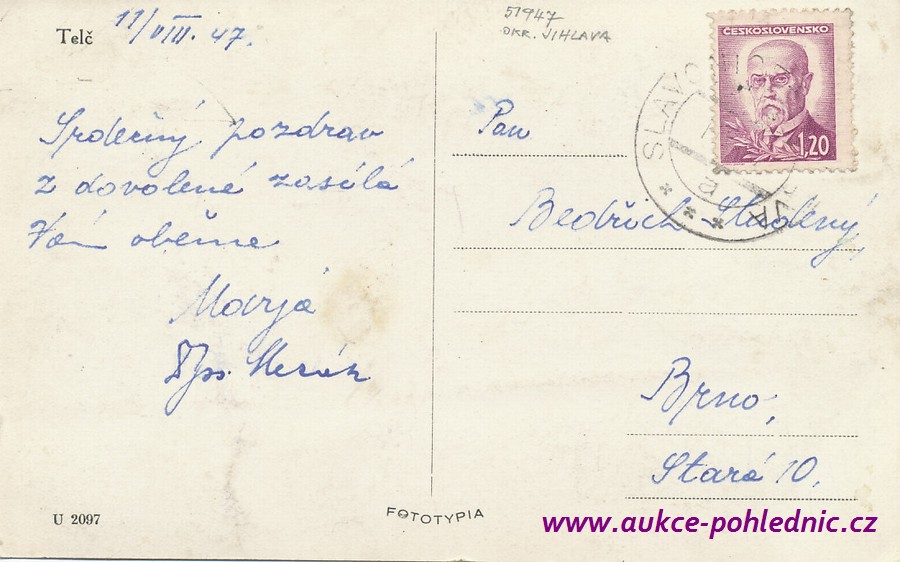 Telč 11/VIII. 47.
51947
OKR. JIHLAVA
ČESKOSLOVENSKO
1,20
SLAVO
Srdečný pozdrav
z dovolené zasílá
Vám oběma
Marja
Pan
Bedřich
Brno,
Stará 10.
U 2097
FOTOTYPIA
www.aukce-pohlednic.cz